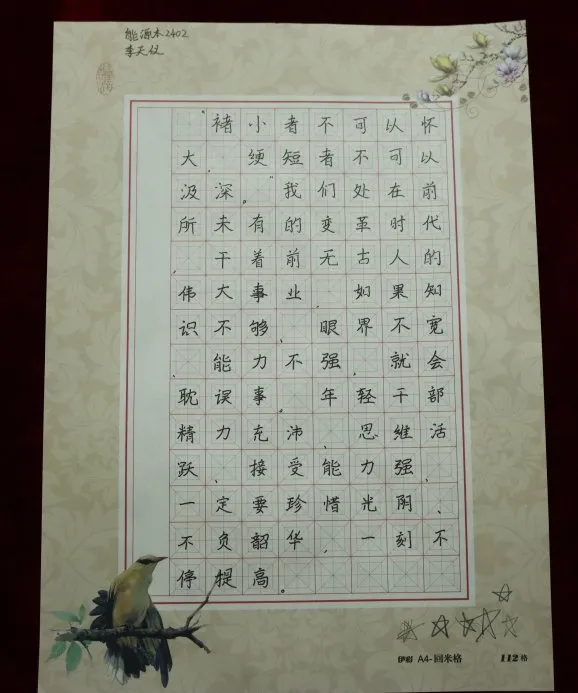 能源本2402
李天仪
“褚小者不可以怀
大,绠短者不可以
汲深。”我们处在前
所未有的变革时代
,干着前无古人的
伟大事业,如果知
识不够、眼界不宽
、能力不强,就会
耽误事。年轻干部
精力充沛、思维活
跃、接受能力强,
一定要珍惜光阴、
不负韶华,一刻不
停提高。
伊彩 A4-回米格 112格